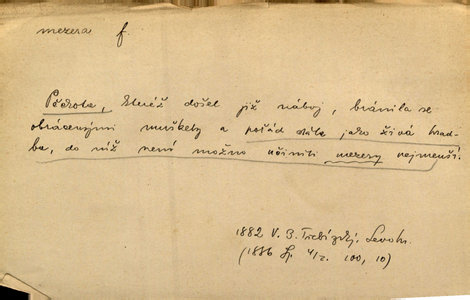 mezera f.
Pěchota, kteréž došel již náboj, bránila se
obrácenými muškety a pořád stála jako živá hrad-
ba, do níž není možno učiniti mezery nejmenší.
1882 V. B. Třebízský, Levohr.
(1886 Sp. 4/2. 100, 10)